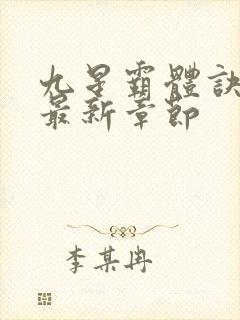 九星霸體訣
最新章節
李某冉